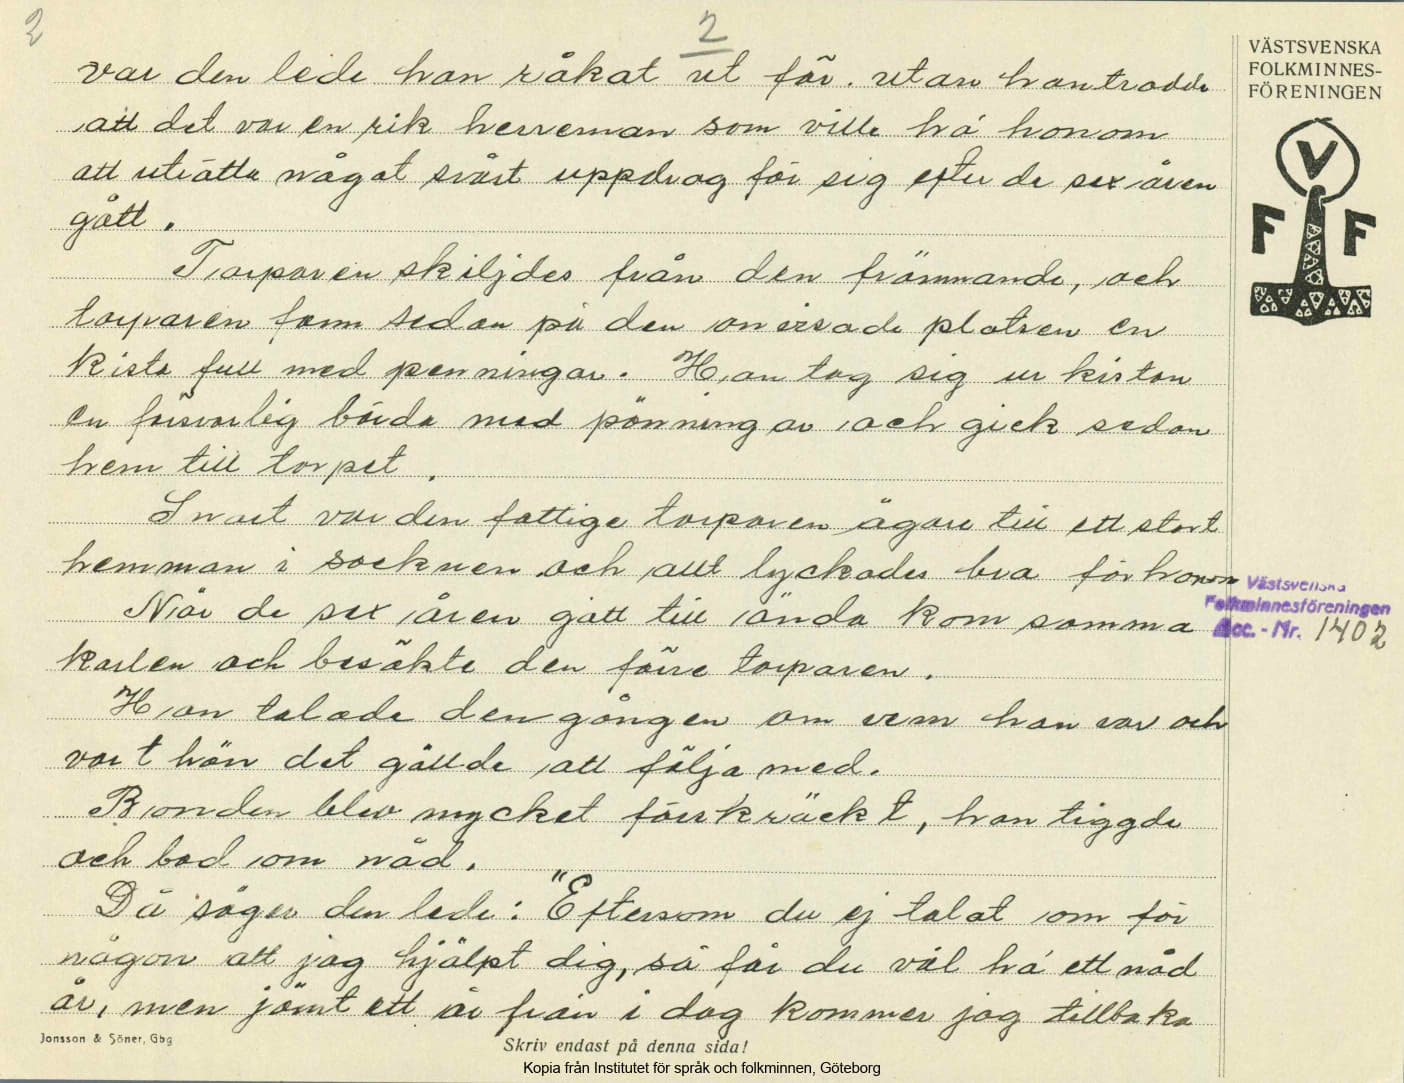 2
2
var den lede han råkat ut för. utan han trodde
att det var en rik herreman som ville há honom
att uträtta något svårt uppdrag för sig efter de sex åren
gått.
Torparen skiljdes från den främmande, och
torparen fann sedan på den anvisade platsen en
kista full med penningar. Han tog sig ur kistan
en försvarlig börda med pänningar och gick sedan
hem till torpet.
Snart var den fattige torparen ägare till ett stort
hemman i socknen och allt lyckades bra för honom
När de sex åren gått till ända kom samma
karlen och besökte den förre torparen.
Han talade den gången om vem han var och
vart hän det gällde att följa med.
Bonden blev mycket förskräckt, han tiggde
och bad om nåd.
Då säger den lede: "Eftersom du ej talat om för
någon att jag hjälpt dig, så får du väl há ett nåd
år, men jämt ett år från i dag kommer jag tillbaka
VÄSTSVENSKA
FOLKMINNES-
FÖRENINGEN
V
F F
Västsvenska
Folkminnesföreningen
Acc. - Nr. 1402
Jonsson & Söner, Gbg
Skriv endast på denna sida!
Kopia från Institutet för språk och folkminnen, Göteborg